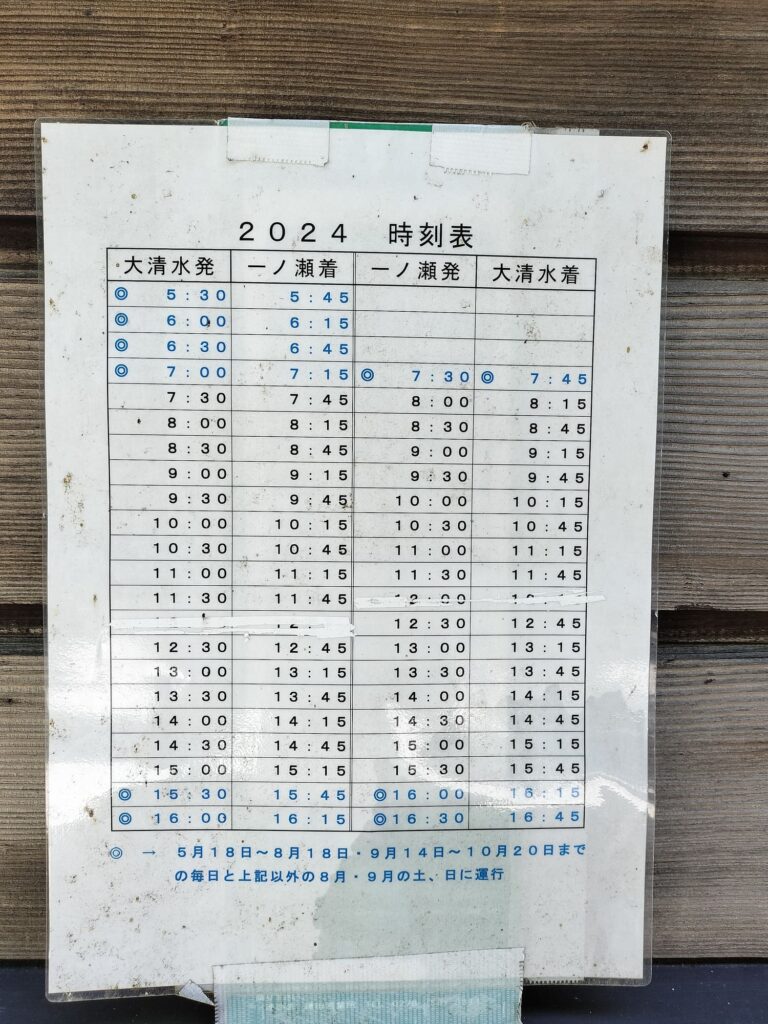 ２０２４　時刻表
大清水発 一ノ瀬着 一ノ瀬発 大清水着
◎ 5：30 5：45
◎ 6：00 6：15
◎ 6：30 6：45
◎ 7：00 7：15 ◎ 7：30 ◎ 7：45
7：30 7：45 8：00 8：15
8：00 8：15 8：30 8：45
8：30 8：45 9：00 9：15
9：00 9：15 9：30 9：45
9：30 9：45 10：00 10：15
10：00 10：15 10：30 10：45
10：30 10：45 11：00 11：15
11：00 11：15 11：30 11：45
11：30 11：45 12：00
12：30 12：45
12：30 12：45 13：00 13：15
13：00 13：15 13：30 13：45
13：30 13：45 14：00 14：15
14：00 14：15 14：30 14：45
14：30 14：45 15：00 15：15
15：00 15：15 15：30 15：45
◎ 15：30 15：45 ◎ 16：00 16：15
◎ 16：00 16：15 ◎ 16：30 16：45
◎ → ５月１８日～８月１８日・９月１４日～１０月２０日まで
の毎日と上記以外の８月・９月の土、日に運行